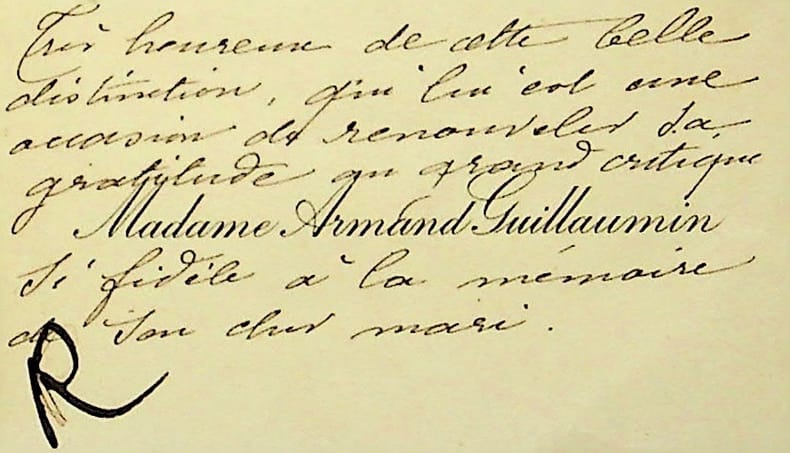 Très heureuse de cette belle
distinction, qui lui est une
occasion de renouveler sa
gratitude au grand critique
Madame Armand Guillaumin
si fidèle à la mémoire
de son cher mari.
R